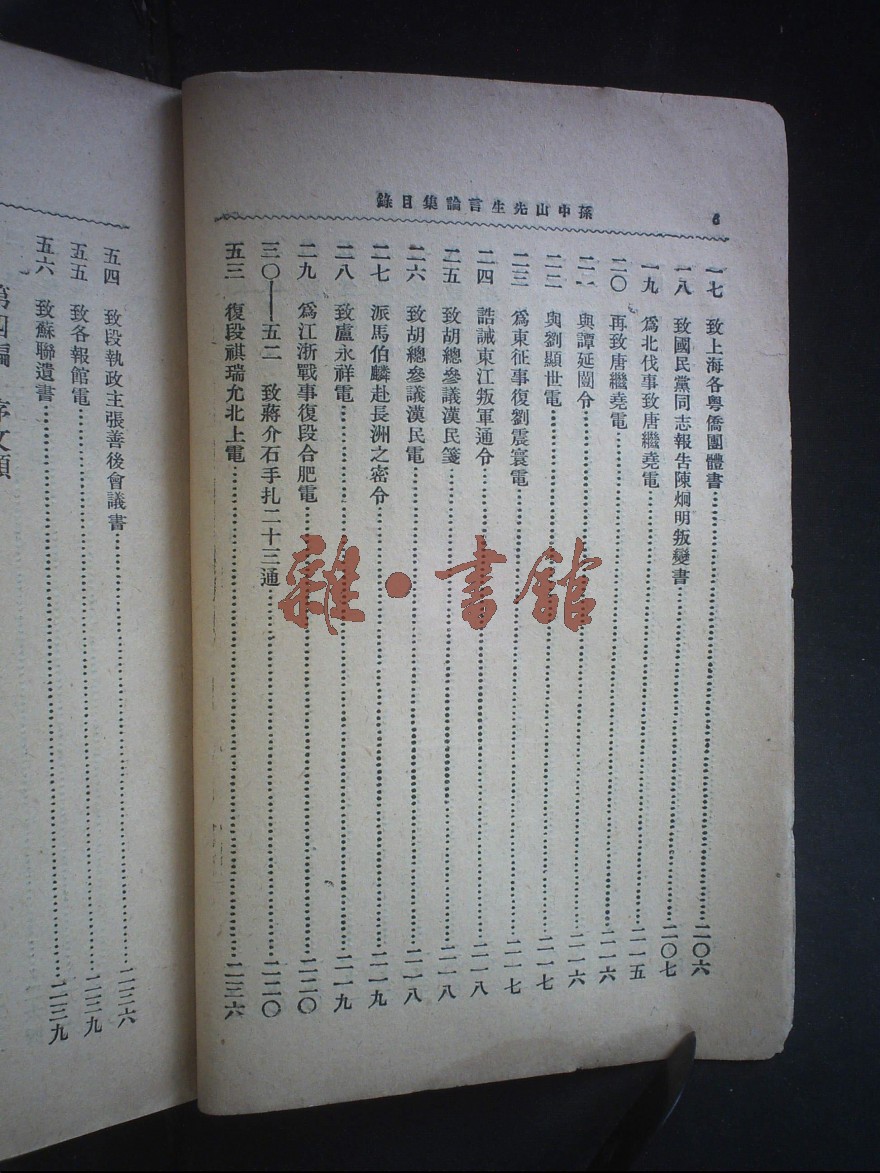 孫中山先生言論集目錄
6
一七　致上海各粵僑團體書……二〇六
一八　致國民黨同志報告陳炯明叛變書……二〇七
一九　爲北伐事致唐繼堯電……二一五
二〇　再致唐繼堯電……二一六
二一　與譚延闓令……二一六
二二　與劉顯世電……二一七
二三　爲東征事復劉震寰電……二一七
二四　誥誡東江叛軍通令……二一八
二五　致胡總參議漢民箋……二一八
二六　致胡總參議漢民電……二一八
二七　派馬伯麟赴長洲之密令……二一九
二八　致盧永祥電……二一九
二九　爲江浙戰事復段合肥電……二二〇
三〇——五二　致蔣介石手扎二十三通……二二〇
五三　復段祺瑞允北上電……二三六
五四　致段執政主張善後會議書……二三六
五五　致各報館電……二三九
五六　致蘇聯遺書……二三九
第四編　序文類
雜·書館